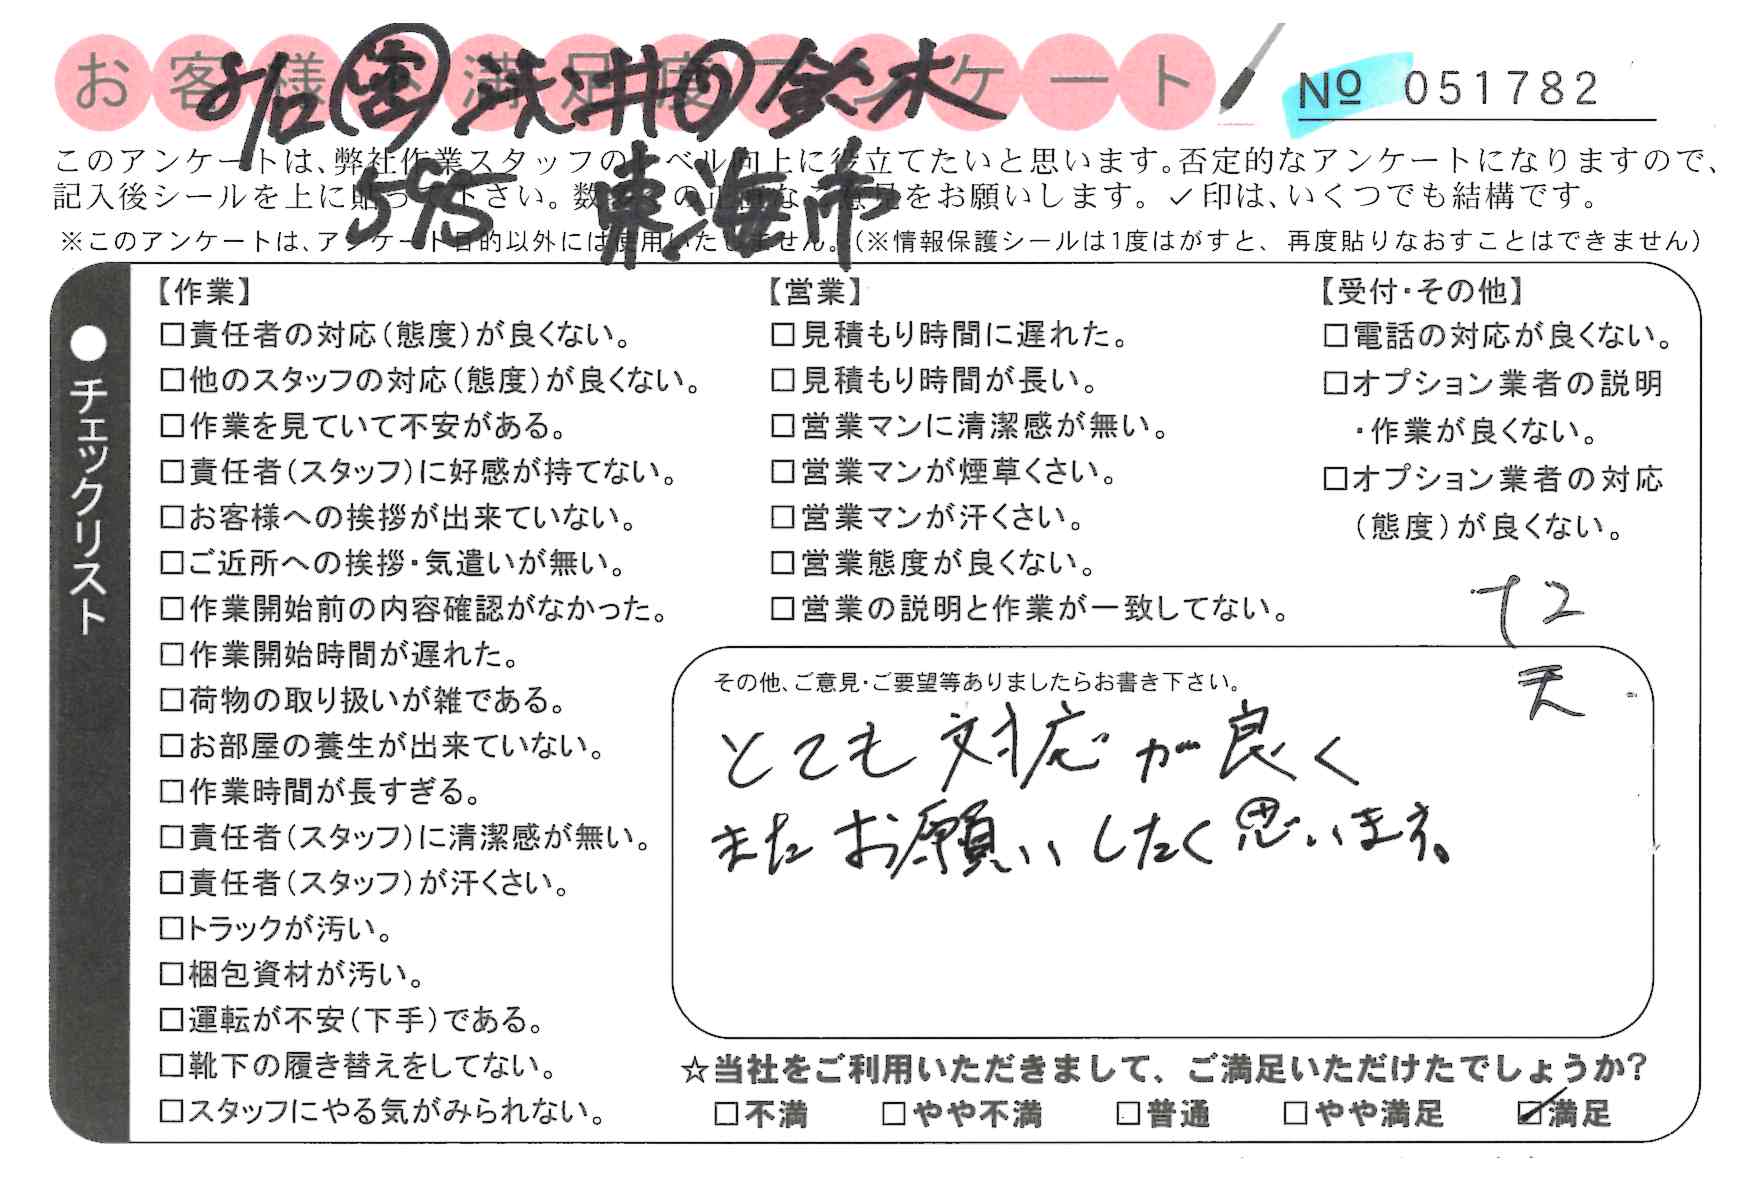 お客様満足度アンケート
№ 051782
鈴木
595 東海市
このアンケートは、弊社作業スタッフのレベル向上に役立てたいと思います。否定的なアンケートになりますので、
記入後シールを上に貼って下さい。数多くの正直なご意見をお願いします。✓印は、いくつでも結構です。
※このアンケートは、アンケート目的以外には使用いたしません。(※情報保護シールは1度はがすと、再度貼りなおすことはできません)
●チェックリスト
【作業】
□責任者の対応(態度)が良くない。
□他のスタッフの対応(態度)が良くない。
□作業を見ていて不安がある。
□責任者(スタッフ)に好感が持てない。
□お客様への挨拶が出来ていない。
□ご近所への挨拶・気遣いが無い。
□作業開始前の内容確認がなかった。
□作業開始時間が遅れた。
□荷物の取り扱いが雑である。
□お部屋の養生が出来ていない。
□作業時間が長すぎる。
□責任者(スタッフ)に清潔感が無い。
□責任者(スタッフ)が汗くさい。
□トラックが汚い。
□梱包資材が汚い。
□運転が不安(下手)である。
□靴下の履き替えをしてない。
□スタッフにやる気がみられない。
【営業】
□見積もり時間に遅れた。
□見積もり時間が長い。
□営業マンに清潔感が無い。
□営業マンが煙草くさい。
□営業マンが汗くさい。
□営業態度が良くない。
□営業の説明と作業が一致してない。
【受付・その他】
□電話の対応が良くない。
□オプション業者の説明
・作業が良くない。
□オプション業者の対応
(態度)が良くない。
その他、ご意見・ご要望等ありましたらお書き下さい。
とても対応が良く
またお願いしたく思います。
☆当社をご利用いただきまして、ご満足いただけたでしょうか?
□不満 □やや不満 □普通 □やや満足 ☑満足